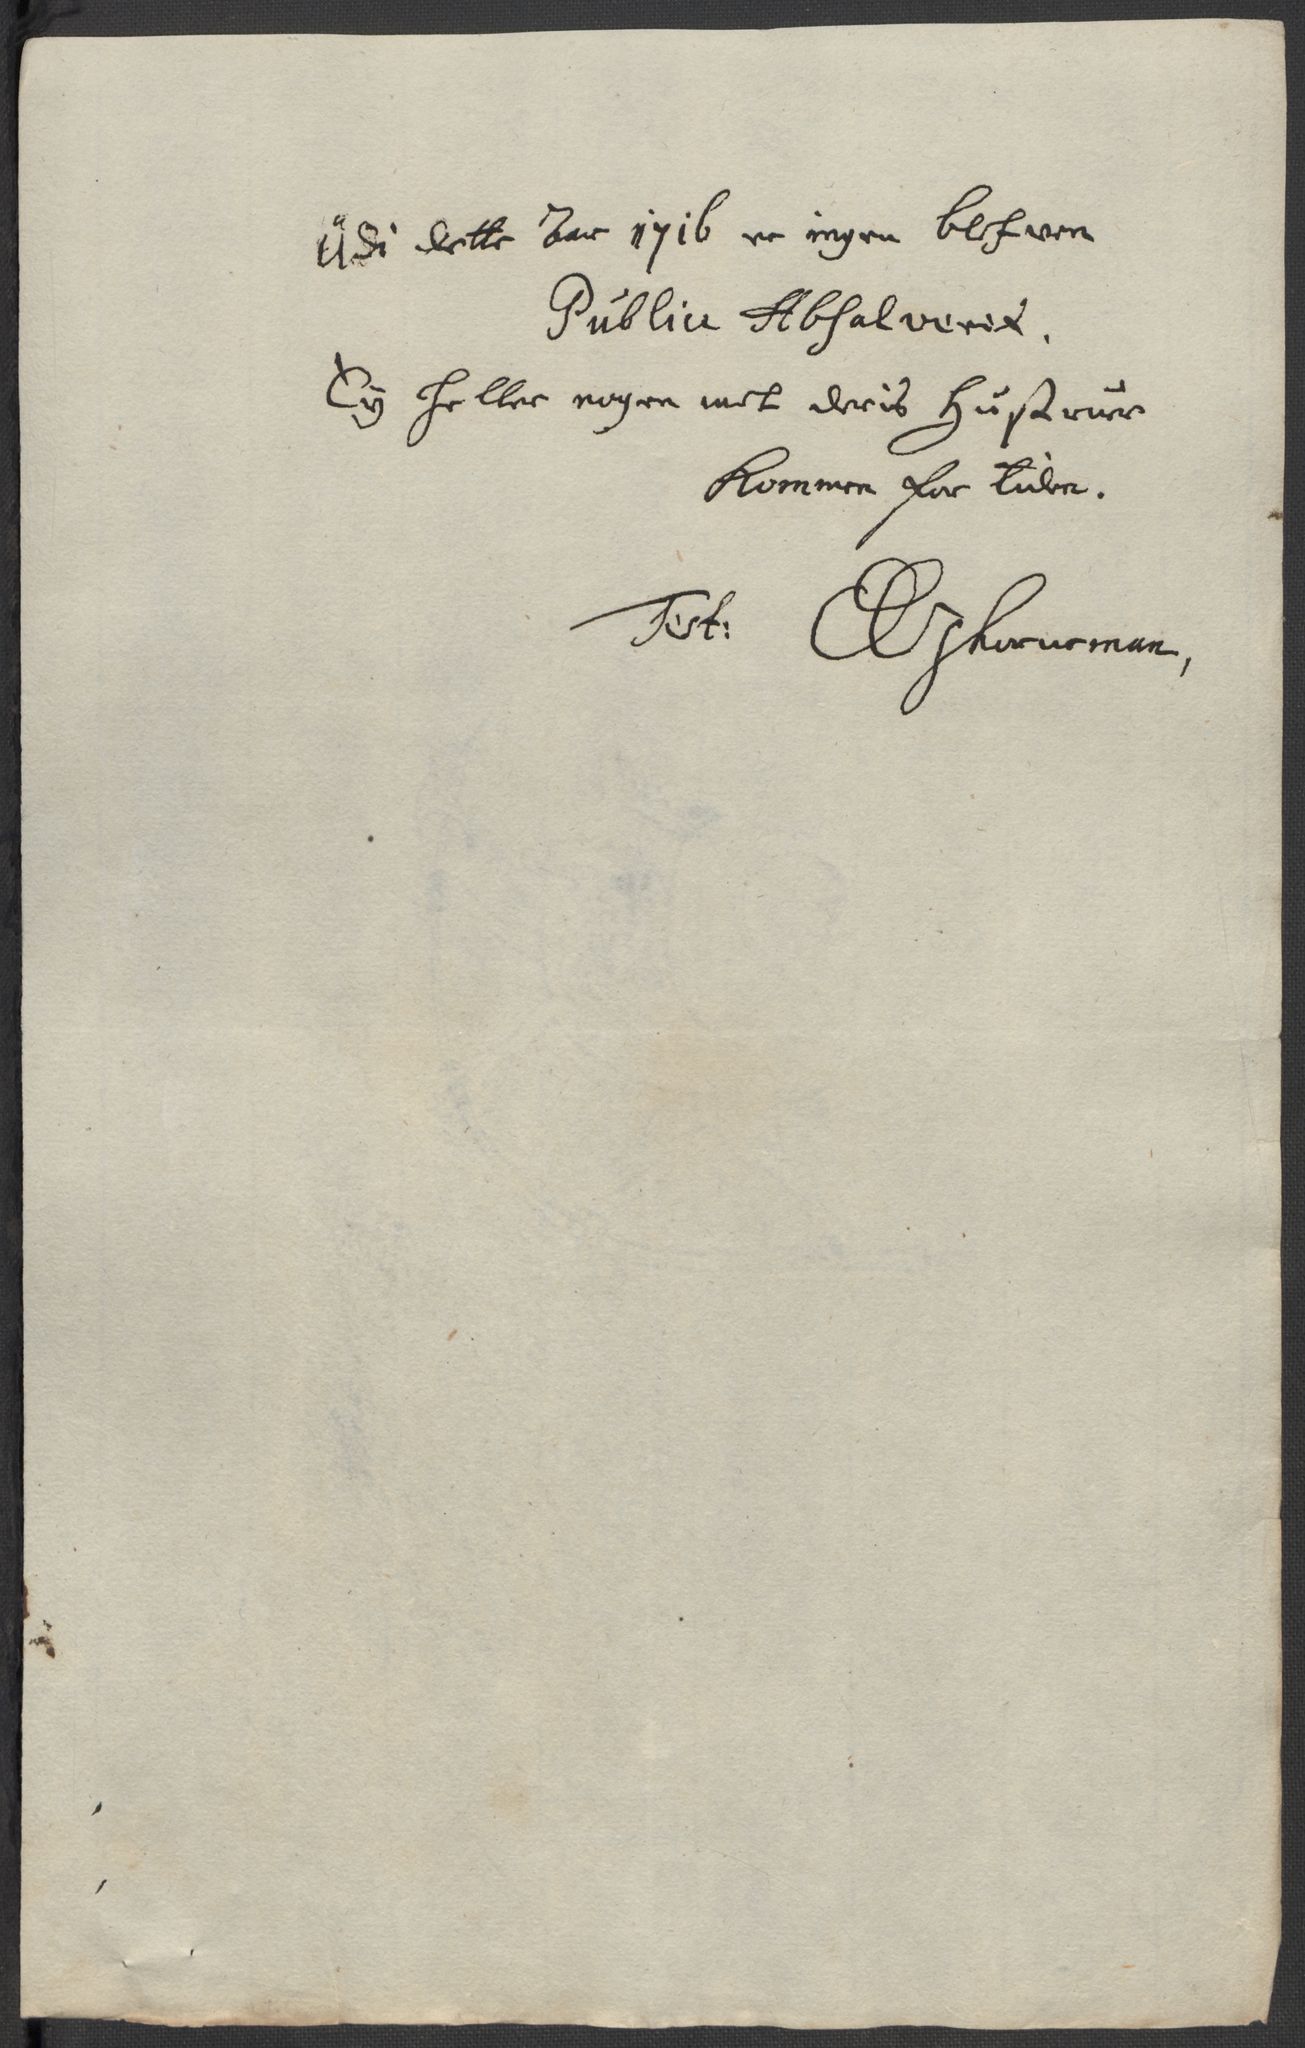 Udi dette Aar 1716 er ingen blefven
Public Absolverit.
Ey heller nogen met deris Hustruer
kommen for tiden.
Test: